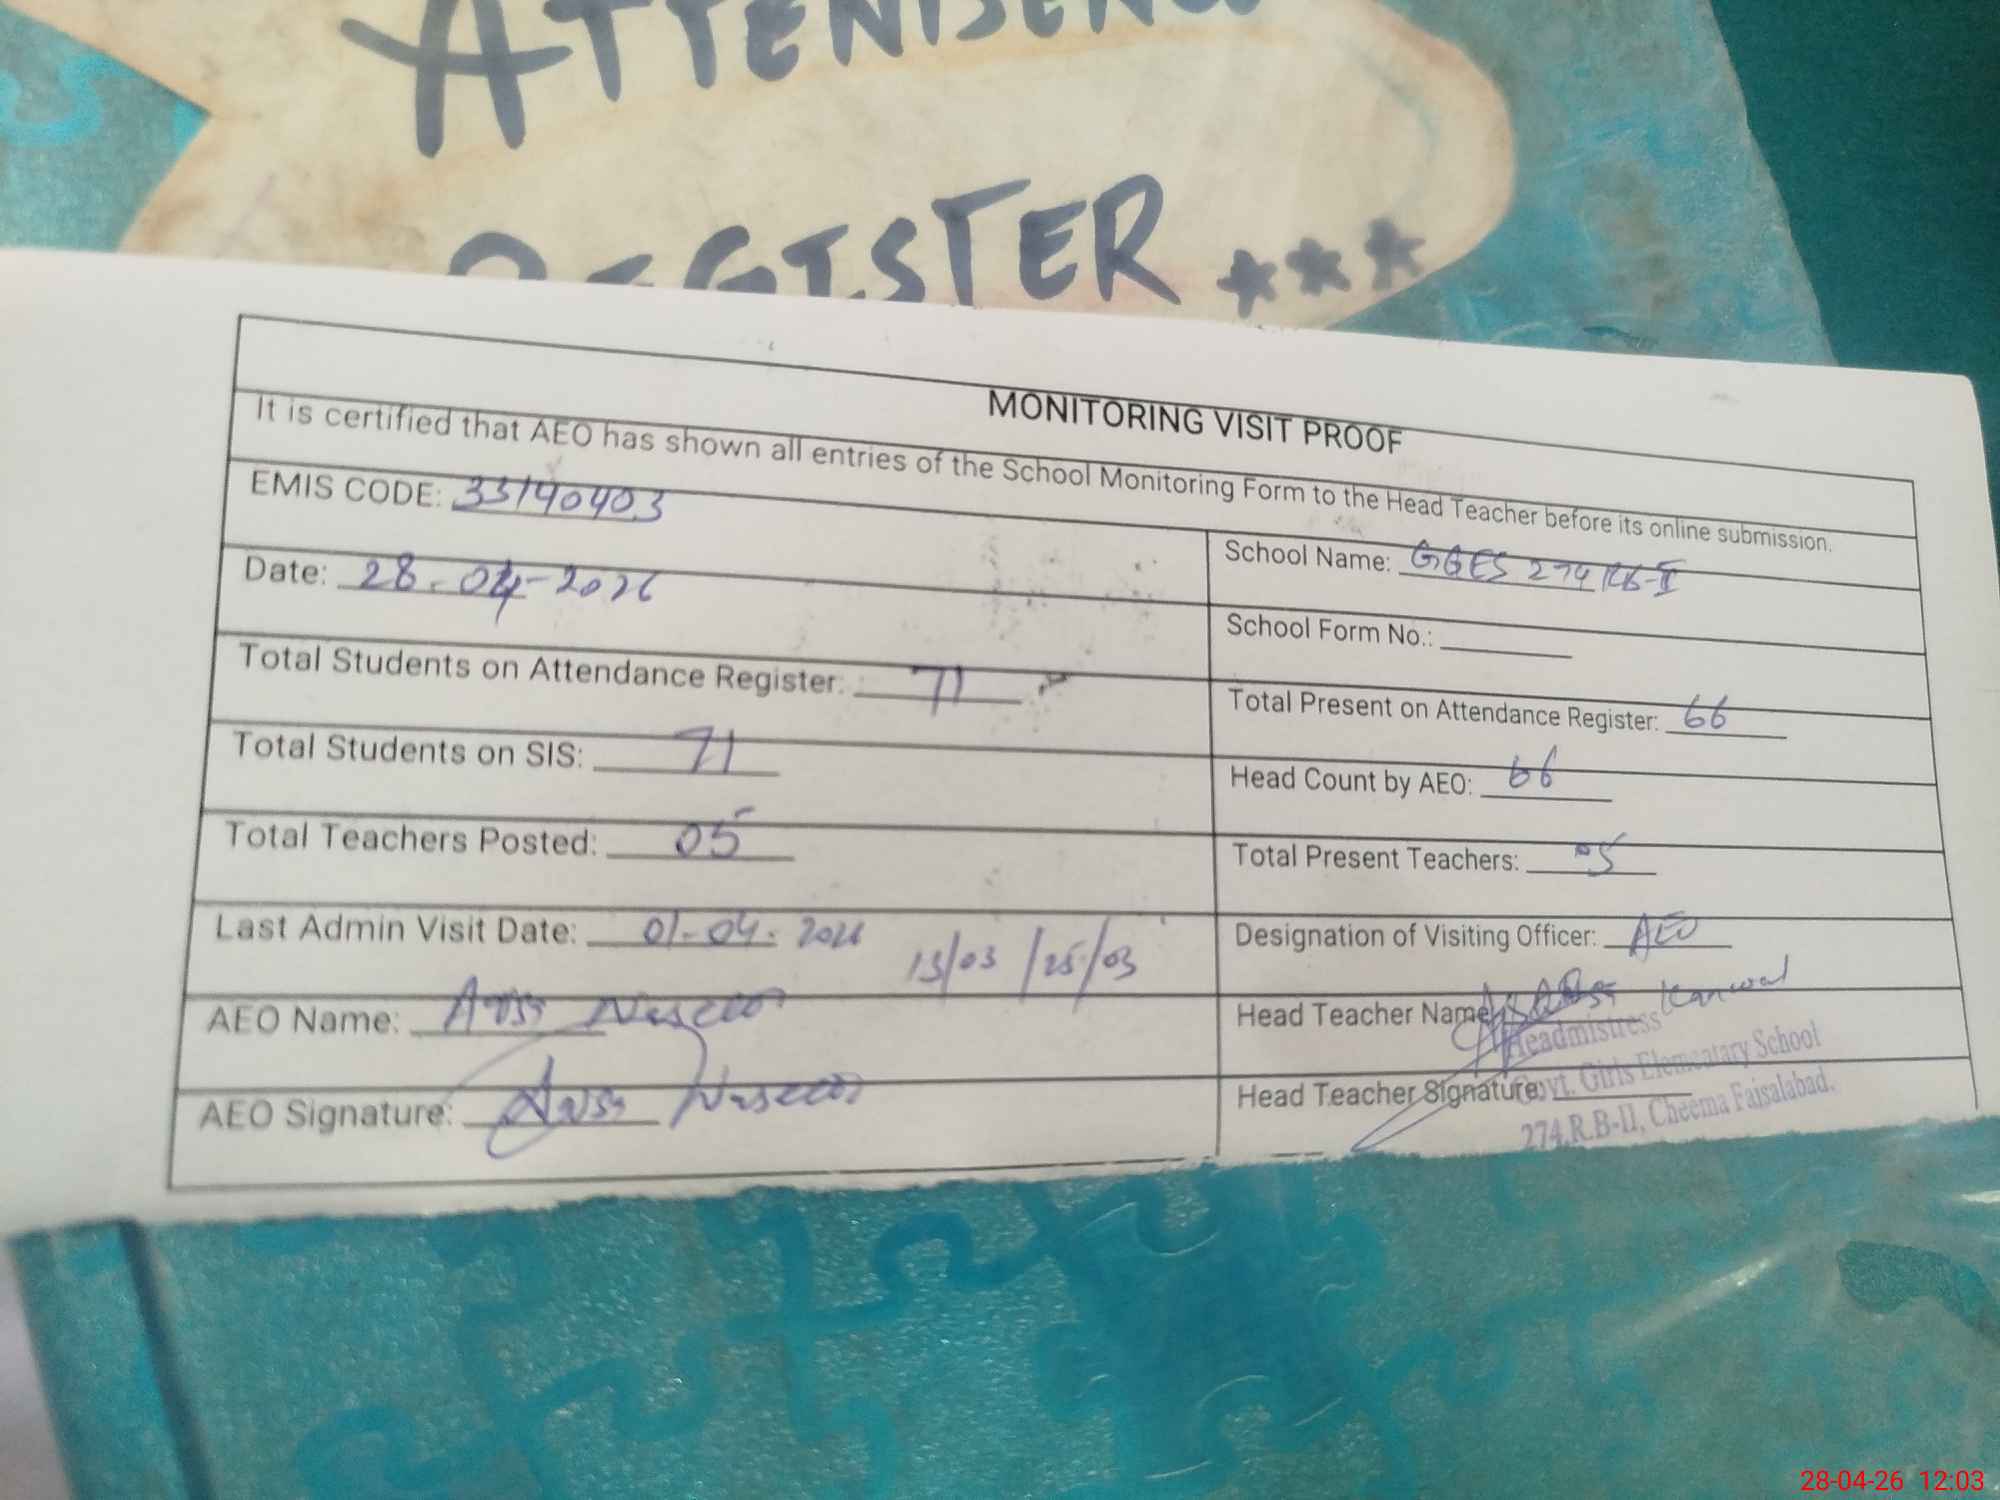 ATTEN
REGISTER ***
MONITORING VISIT PROOF
It is certified that AEO has shown all entries of the School Monitoring Form to the Head Teacher before its online submission.
EMIS CODE: 33140403
School Name: GGES 274 RB-II
Date: 28-04-2026
School Form No.:
Total Students on Attendance Register: 71
Total Present on Attendance Register: 66
Total Students on SIS: 71
Head Count by AEO: 66
Total Teachers Posted: 05
Total Present Teachers: 05
Last Admin Visit Date: 01-04-2026 13/03 /25/03
Designation of Visiting Officer: AEO
AEO Name:
Head Teacher Name: Kanwal
AEO Signature:
Head Teacher Signature:
Headmistress
Govt. Girls Elementary School
274,R.B-II, Cheema Faisalabad.
28-04-26 12:03